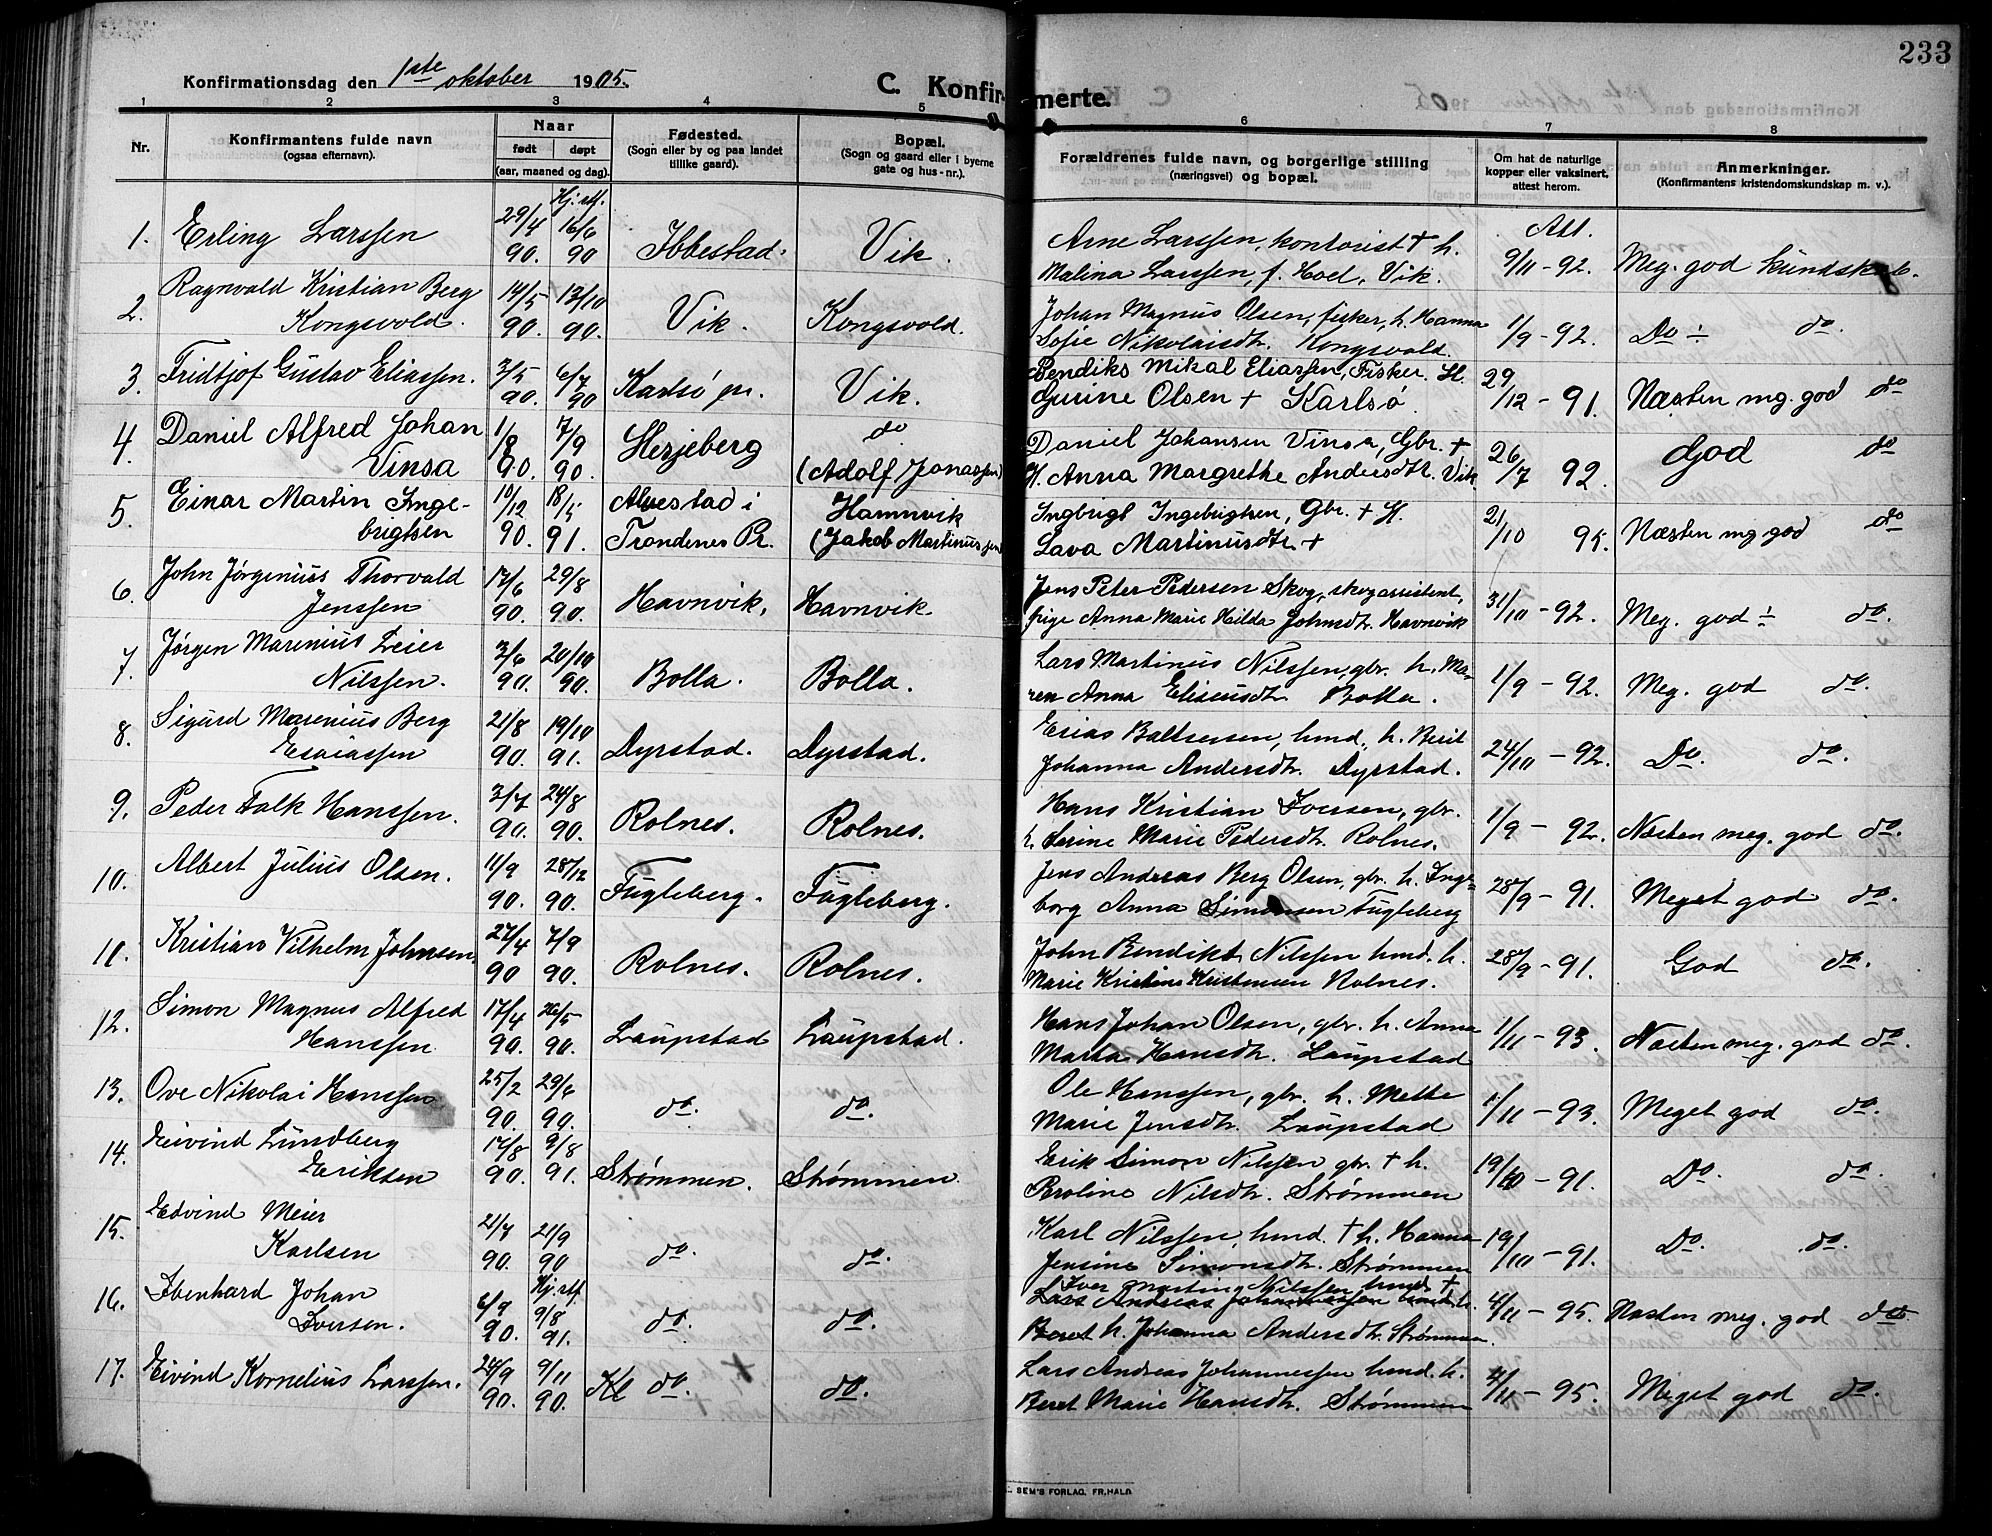 233
Konfirmationsdag den 1ste oktober 1905.
C. Konfirmerte.
1 2 3 4 5 6 7 8
Nr.
Konfirmantens fulde navn
(ogsaa efternavn).
Naar
født døpt
(aar, maaned og dag).
Fødested.
(Sogn eller by og paa landet
tillike gaard).
Bopæl.
(Sogn og gaard eller i byerne
gate og hus-nr.).
Forældrenes fulde navn, og borgerlige stilling
(næringsvei) og bopæl.
Om hat de naturlige
kopper eller vaksinert,
attest herom.
Anmerkninger.
(Konfirmantens kristendomskundskap m. v.).
1. Erling Larssen 29/4 90. Hj. df. 16/6 90 Ibbestad. Vik. Arne Larssen, kontorist + h. Att. 9/11-92. Meg. god kundskab.
Malina Larssen, f. Hoel, Vik.
2. Ragnvald Kristian Berg 14/5 90. 13/10 90. Vik. Kongsvold. Johan Magnus Olsen, fisker, h. Hanna 1/9-92. Do ÷ do.
Kongsvold. Sofie Nikolaisdtr. Kongsvold.
3. Fridtjof Gustav Eliassen. 3/5 90. 6/7 90 Karlsø pr. Vik. Bendiks Mikal Eliassen, Fisker. H. 29/12-91. Næsten mg. god do
Gurine Olsen + Karlsø.
4. Daniel Alfred Johan 1/8 90. 7/9 90. Herjeberg do Daniel Johansen Vinsa, Gbr. + 26/7 92. God do
Vinsa (Adolf Jonassen) H. Anna Margrethe Andersdtr. Vik
5. Einar Martin Inge- 10/12 90. 18/5 91. Alvestad i Hamnvik Ingbrigt Ingebrigtsen, Gbr. + H. 21/10 95. Næsten mg god do
brigtsen Trondenes Pr. (Jakob Martinussen) Lava Martinusdtr. +
6. John Jørgenius Thorvald 17/6 90. 29/8 90. Havnvik. Havnvik. Jens Peter Pedersen Skog, skogassistent, 31/10-92. Meg. god ÷ do.
Jenssen pige Anna Marie Hilda Johnsdtr. Havnvik
7. Jørgen Marenius Leier 3/6 90. 20/10 90. Bolla. Bolla. Lars Martinus Nilssen, gbr. h. Ma- 1/9-92. Meg. god do.
Nilssen. ren Anna Eliseusdtr Bolla.
8. Sigurd Marenius Berg 21/8 90. 19/10 91. Dyrstad. Dyrstad. Esias Baltsersen, hmd., h. Berit 24/10-92. Do. do.
Esaiassen Johanna Andersdtr. Dyrstad.
9. Peder Falk Hanssen. 3/7 90. 24/8 90. Rolnes. Rolnes. Hans Kristian Iversen, gbr. 1/9-92. Næsten meg. god do.
h. Serine Marie Pedersdtr. Rolnes.
10. Albert Julius Olsen. 11/9 90. 28/12 90. Fugleberg. Fugleberg. Jens Andreas Berg Olsen, gbr. h. Inge- 28/9-91. Meget god do.
borg Anna Simonsen Fugleberg
11. Kristian Vilhelm Johnsen. 27/4 90 7/9 90. Rolnes. Rolnes. John Bendikt Nilssen hmd. h. 28/9-91. God do.
Marie Kristine Kristensen Rolnes.
12. Simon Magnus Alfred 17/4 90. 26/5 90. Laupstad Laupstad. Hans Johan Olsen, gbr. h. Anna 1/11-93. Næsten meg. god do.
Hanssen Marta Hansdtr. Laupstad
13. Ove Nikolai Hanssen 25/2 90. 29/6 90. do. do. Ole Hanssen, gbr. h. Mette 1/11-93. Meget god do.
Marie Jensdtr. Laupstad
14. Eivind Lundberg 17/8 90. 9/8 91. Strømmen. Strømmen Erik Simon Nilssen gbr. + h. 19/10-91. Do. do.
Eriksen Proline Nilsdtr. Strømmen
15. Edvind Meier 21/7 90. 21/9 90 do. do. Karl Nilssen, hmd. + h. Hanna 19/10-91. Do. do.
Karlsen Jensine Simonsdtr. Strømmen
16. Ebenhard Johan 6/9 90. Hj. df. 9/8 91. do. do. Iver Martinus Nilssen hmd + 4/11-95. Næsten meg. god do.
Iversen. Lars Andreas Johannessen hmd h.
Beret h. Johanna Andersdtr. Strømmen
17. Eivind Kornelius Larssen. 24/9 90. 9/11 90. Kl do. do. Lars Andreas Johannessen hmd. h. 4/11-95. Meget god do.
Beret Marie Hansdtr. Strømmen
SEM'S FORLAG, FR.HALD.